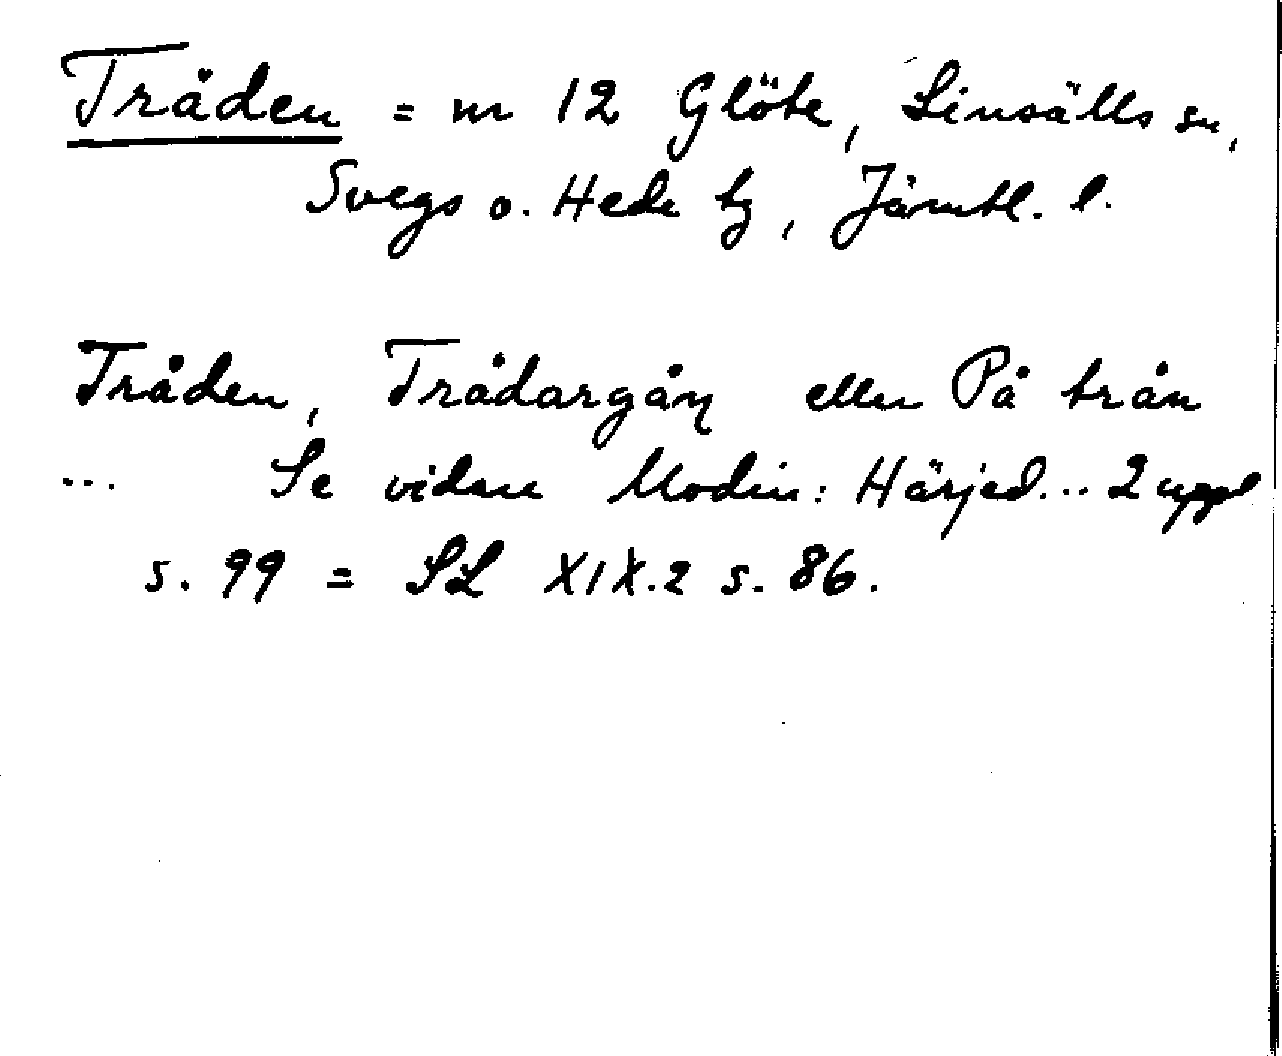 Tråden = nr 12 Glöte, Linsälls sn,
Svegs o. Hede tg, Jämtl. l.
Tråden, Trådargån eller På trån
... Se vidare Modin: Härjed... 2 uppl
s. 99 = SL XIX.2 s. 86.